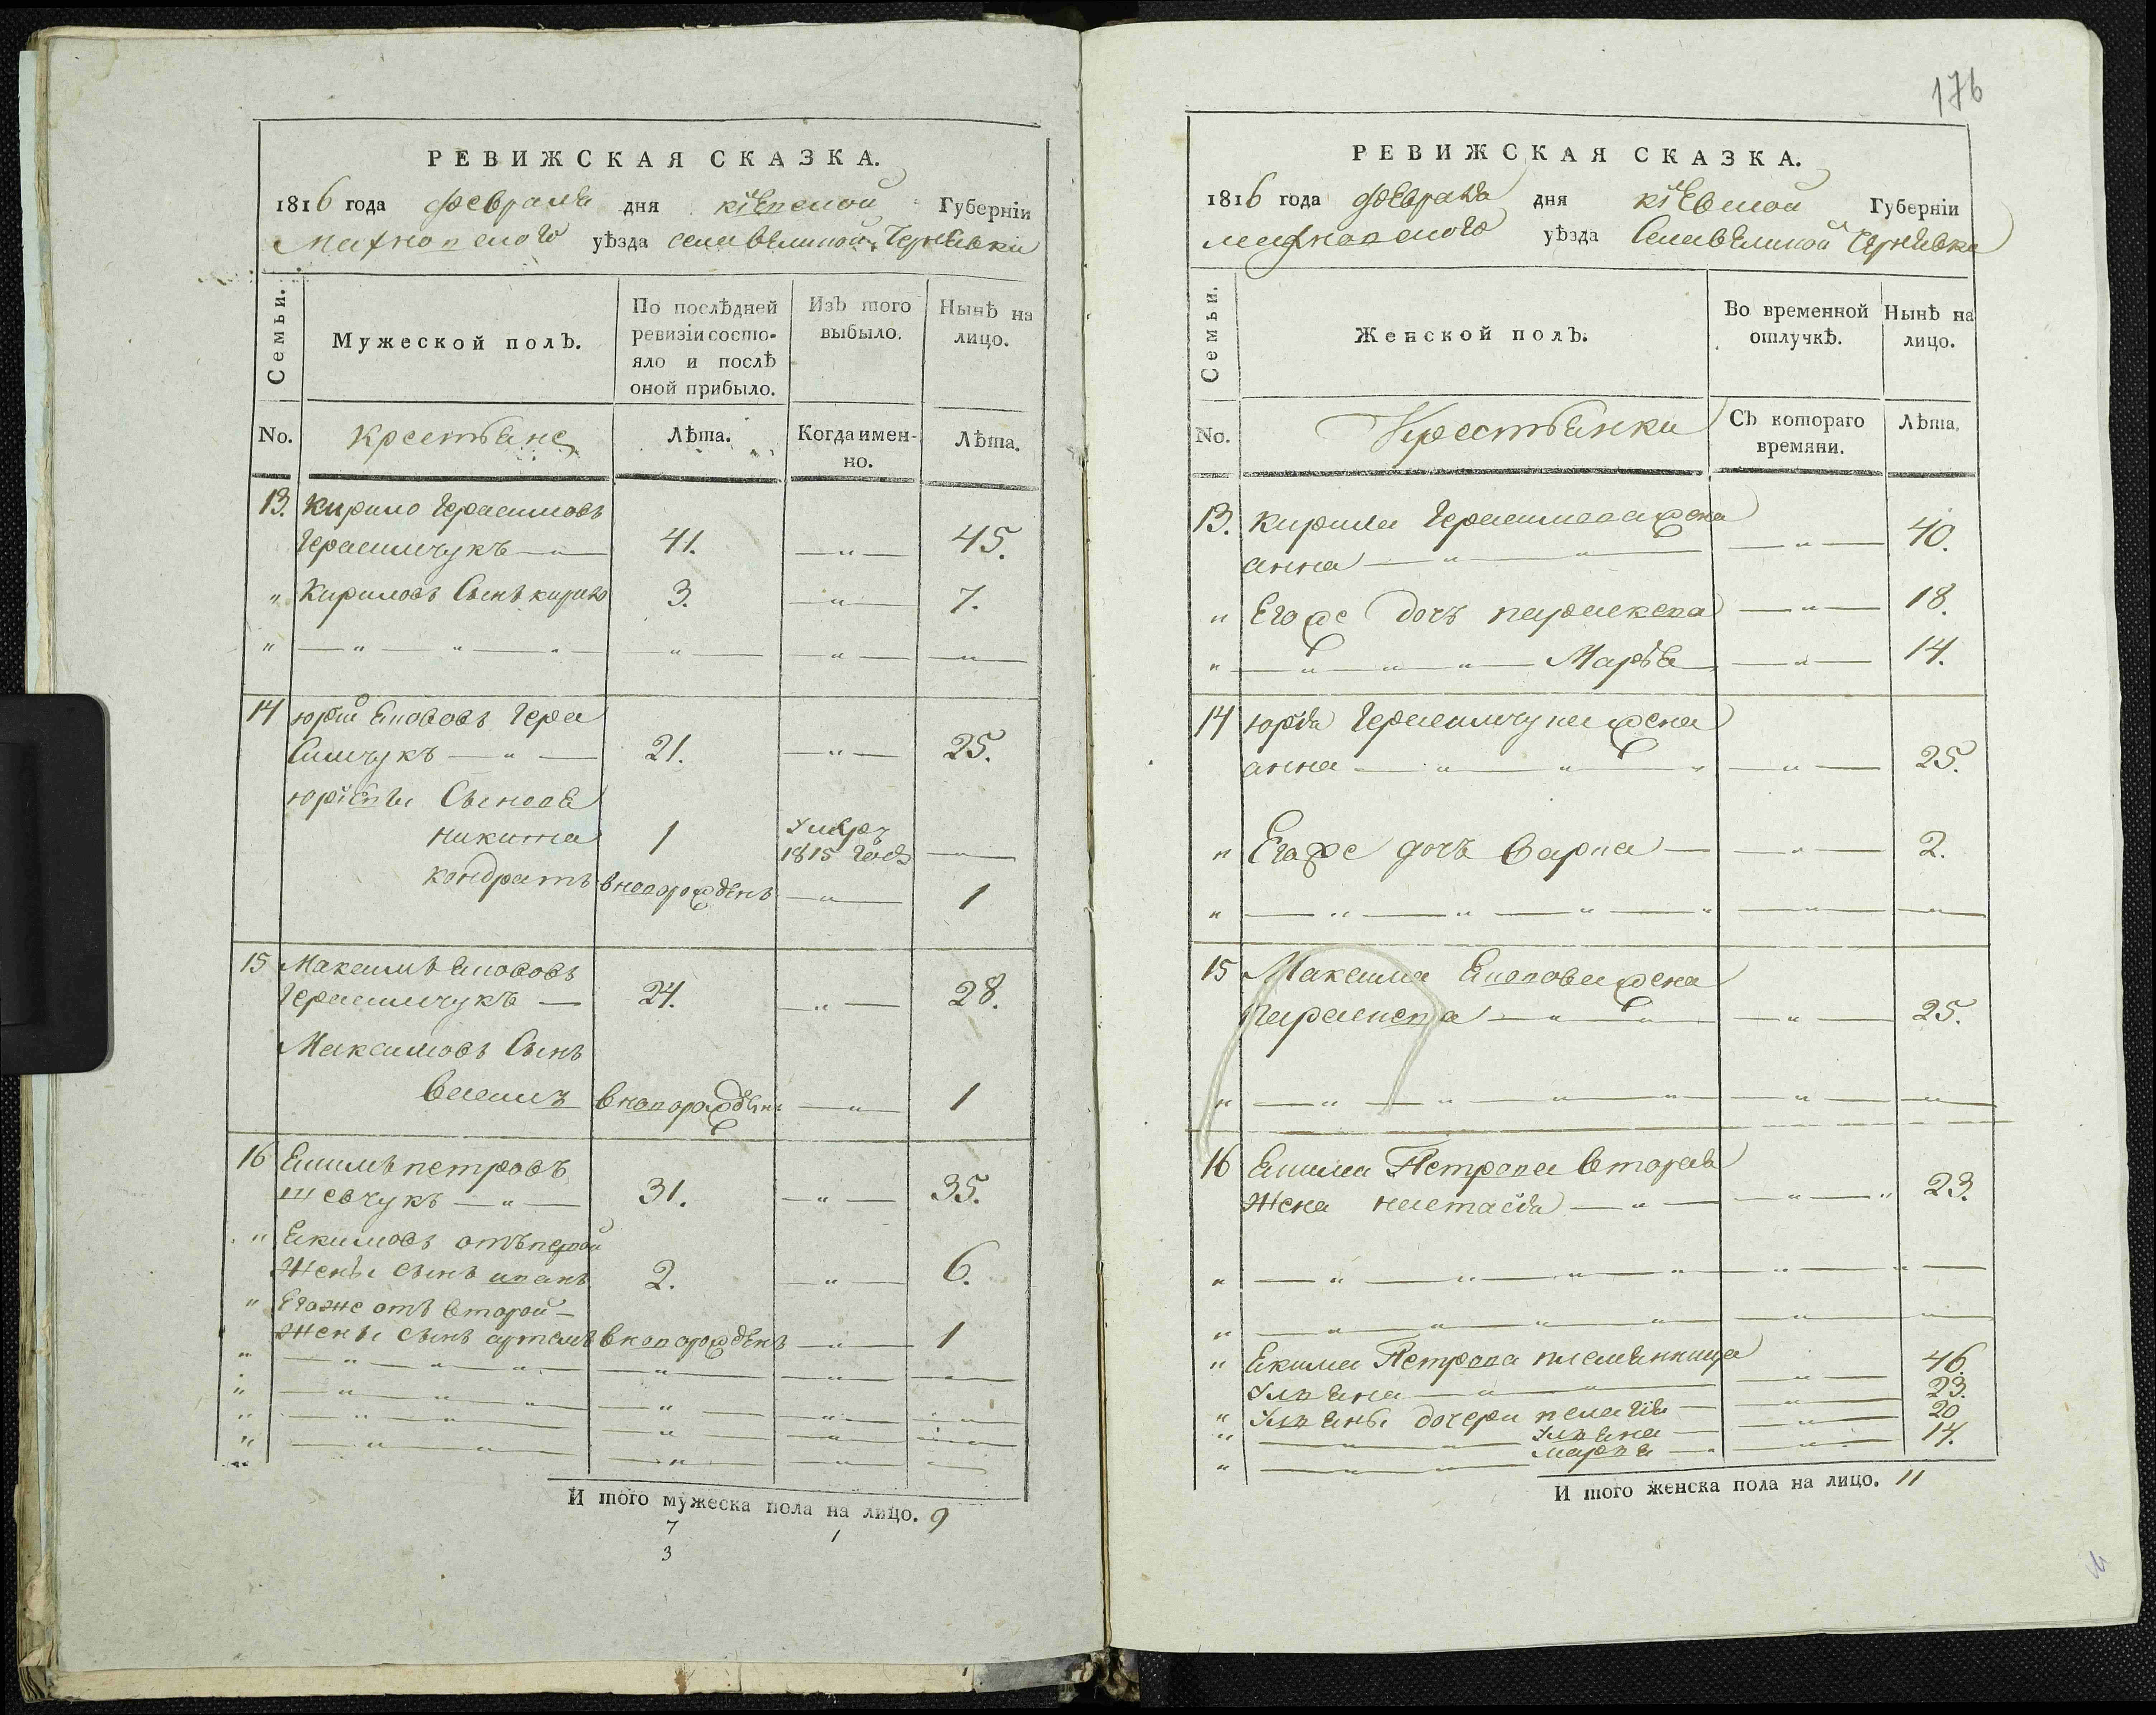 РЕВИЖСКАЯ СКАЗКА.
1816 года февраля дня кіевской Губерніи
Махновского уѣзда села великой Чернявки
Семьи.
Мужеской полъ.
По послѣдней ревизіи состо-
яло и послѣ оной прибыло.
Изъ того выбыло.
Нынѣ на лицо.
No. крестьяне Лѣта. Когда имен-
но. Лѣта.
13. Кирило Герасимовъ
Герасимчукъ — " — 41. — " — 45.
" Кириловъ Сынъ кирило 3. — " — 7.
" — " — " — " — " — " — " —
14 юрій Якововъ Гера
симчукъ — " — 21. — " — 25.
юріевы Сыновя
никита 1 умеръ
1815 года —
кондратъ вноворожденъ — " — 1
15 Максимъ Якововъ
Герасимчукъ — 24. — " — 28.
Максимовъ Сынъ
вноворожденъ — " — 1
16 Якимъ петровъ
шевчукъ — " — 31. — " — 35.
" Якимовъ отъ первой
Жены сынъ иванъ 2. — " — 6.
" Егоже отъ второй —
Жены сынъ артемъ вноворожденъ — " — 1
И того мужеска пола на лицо. 9
7 1
3
176
РЕВИЖСКАЯ СКАЗКА.
1816 года февраля дня кіевской Губерніи
махновского уѣзда Села великой Чернявки
Семьи.
Женской полъ.
Во временной отлучкѣ.
Нынѣ на лицо.
No. Крестьянки Съ котораго
времяни. Лѣта.
13. кирила Герасимова жена
анна — " — " — " — 40.
" Его же дочъ параскева — " — 18.
" — " — " — " — Марья — " — 14.
14 юрія Герасимчука жена
анна — " — " — " — " — 25.
" Его же дочъ варка — " — 2.
" — " — " — " — " — " — " —
15 Максима Яковова жена
Параскева — " — " — " — 25.
" — " — " — " — " — " — " —
16 Якима Петрова вторая
Жена настасія — " — " — " 23.
" — " — " — " — " — " — " —
" — " — " — " — " — " — " —
" Якима Петрова племянница
Ульяна — " — " — 46.
" Ульяны дочери пелагія — " — 23.
" — " — " — Ульяна — " — 20
" — " — " — марья — " — 14.
И того женска пола на лицо. 11